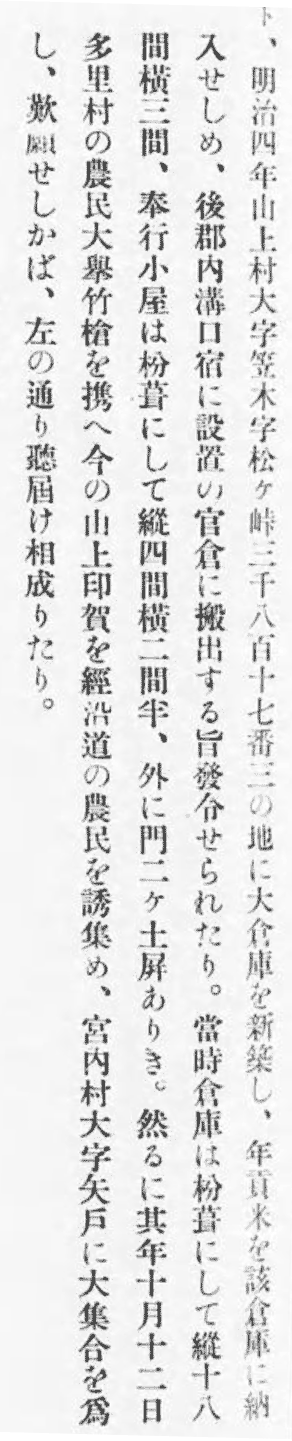 、明治四年山上村大字笠木字松ヶ峠三千八百十七番三の地に大倉庫を新築し、年貢米を該倉庫に納
入せしめ、後郡内溝口宿に設置の官倉に搬出する旨發令せられたり。當時倉庫は枌葺にして縱十八
間橫三間、奉行小屋は枌葺にして縱四間橫二間半、外に門二ヶ土屛ありき。然るに其年十月十二日
多里村の農民大擧竹槍を携へ今の山上印賀を經沿道の農民を誘集め、宮內村大字矢戶に大集合を爲
し、歎願せしかば、左の通り聽屆け相成りたり。